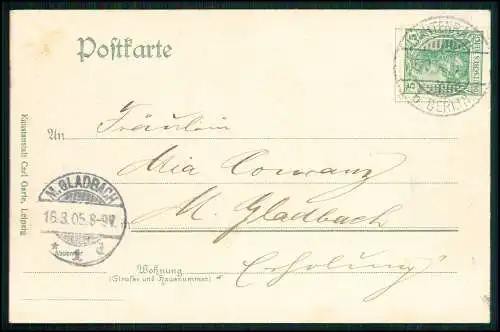 Postkarte
LICHTENRADE
b. BERLIN
DEUTSCHES REICH
5
An
Fräulein
Mia
M. Gladbach
Wohnung
(Straße und Hausnummer)
Erholung
M. GLADBACH
16.3.05.8-9V.
* 1 d
Kunstanstalt Carl Garte, Leipzig.